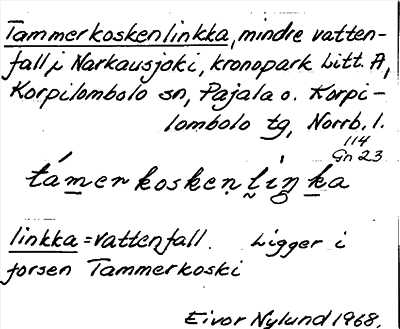 Tammerkoskenlinkka, mindre vatten-
fall i Narkausjoki, kronopark Litt. A,
Korpilombolo sn, Pajala o. Korpi-
lombolo tg, Norrb. l.
114
Gn 23
támerkosken liŋka
linkka = vattenfall. Ligger i
forsen Tammerkoski
Eivor Nylund 1968.